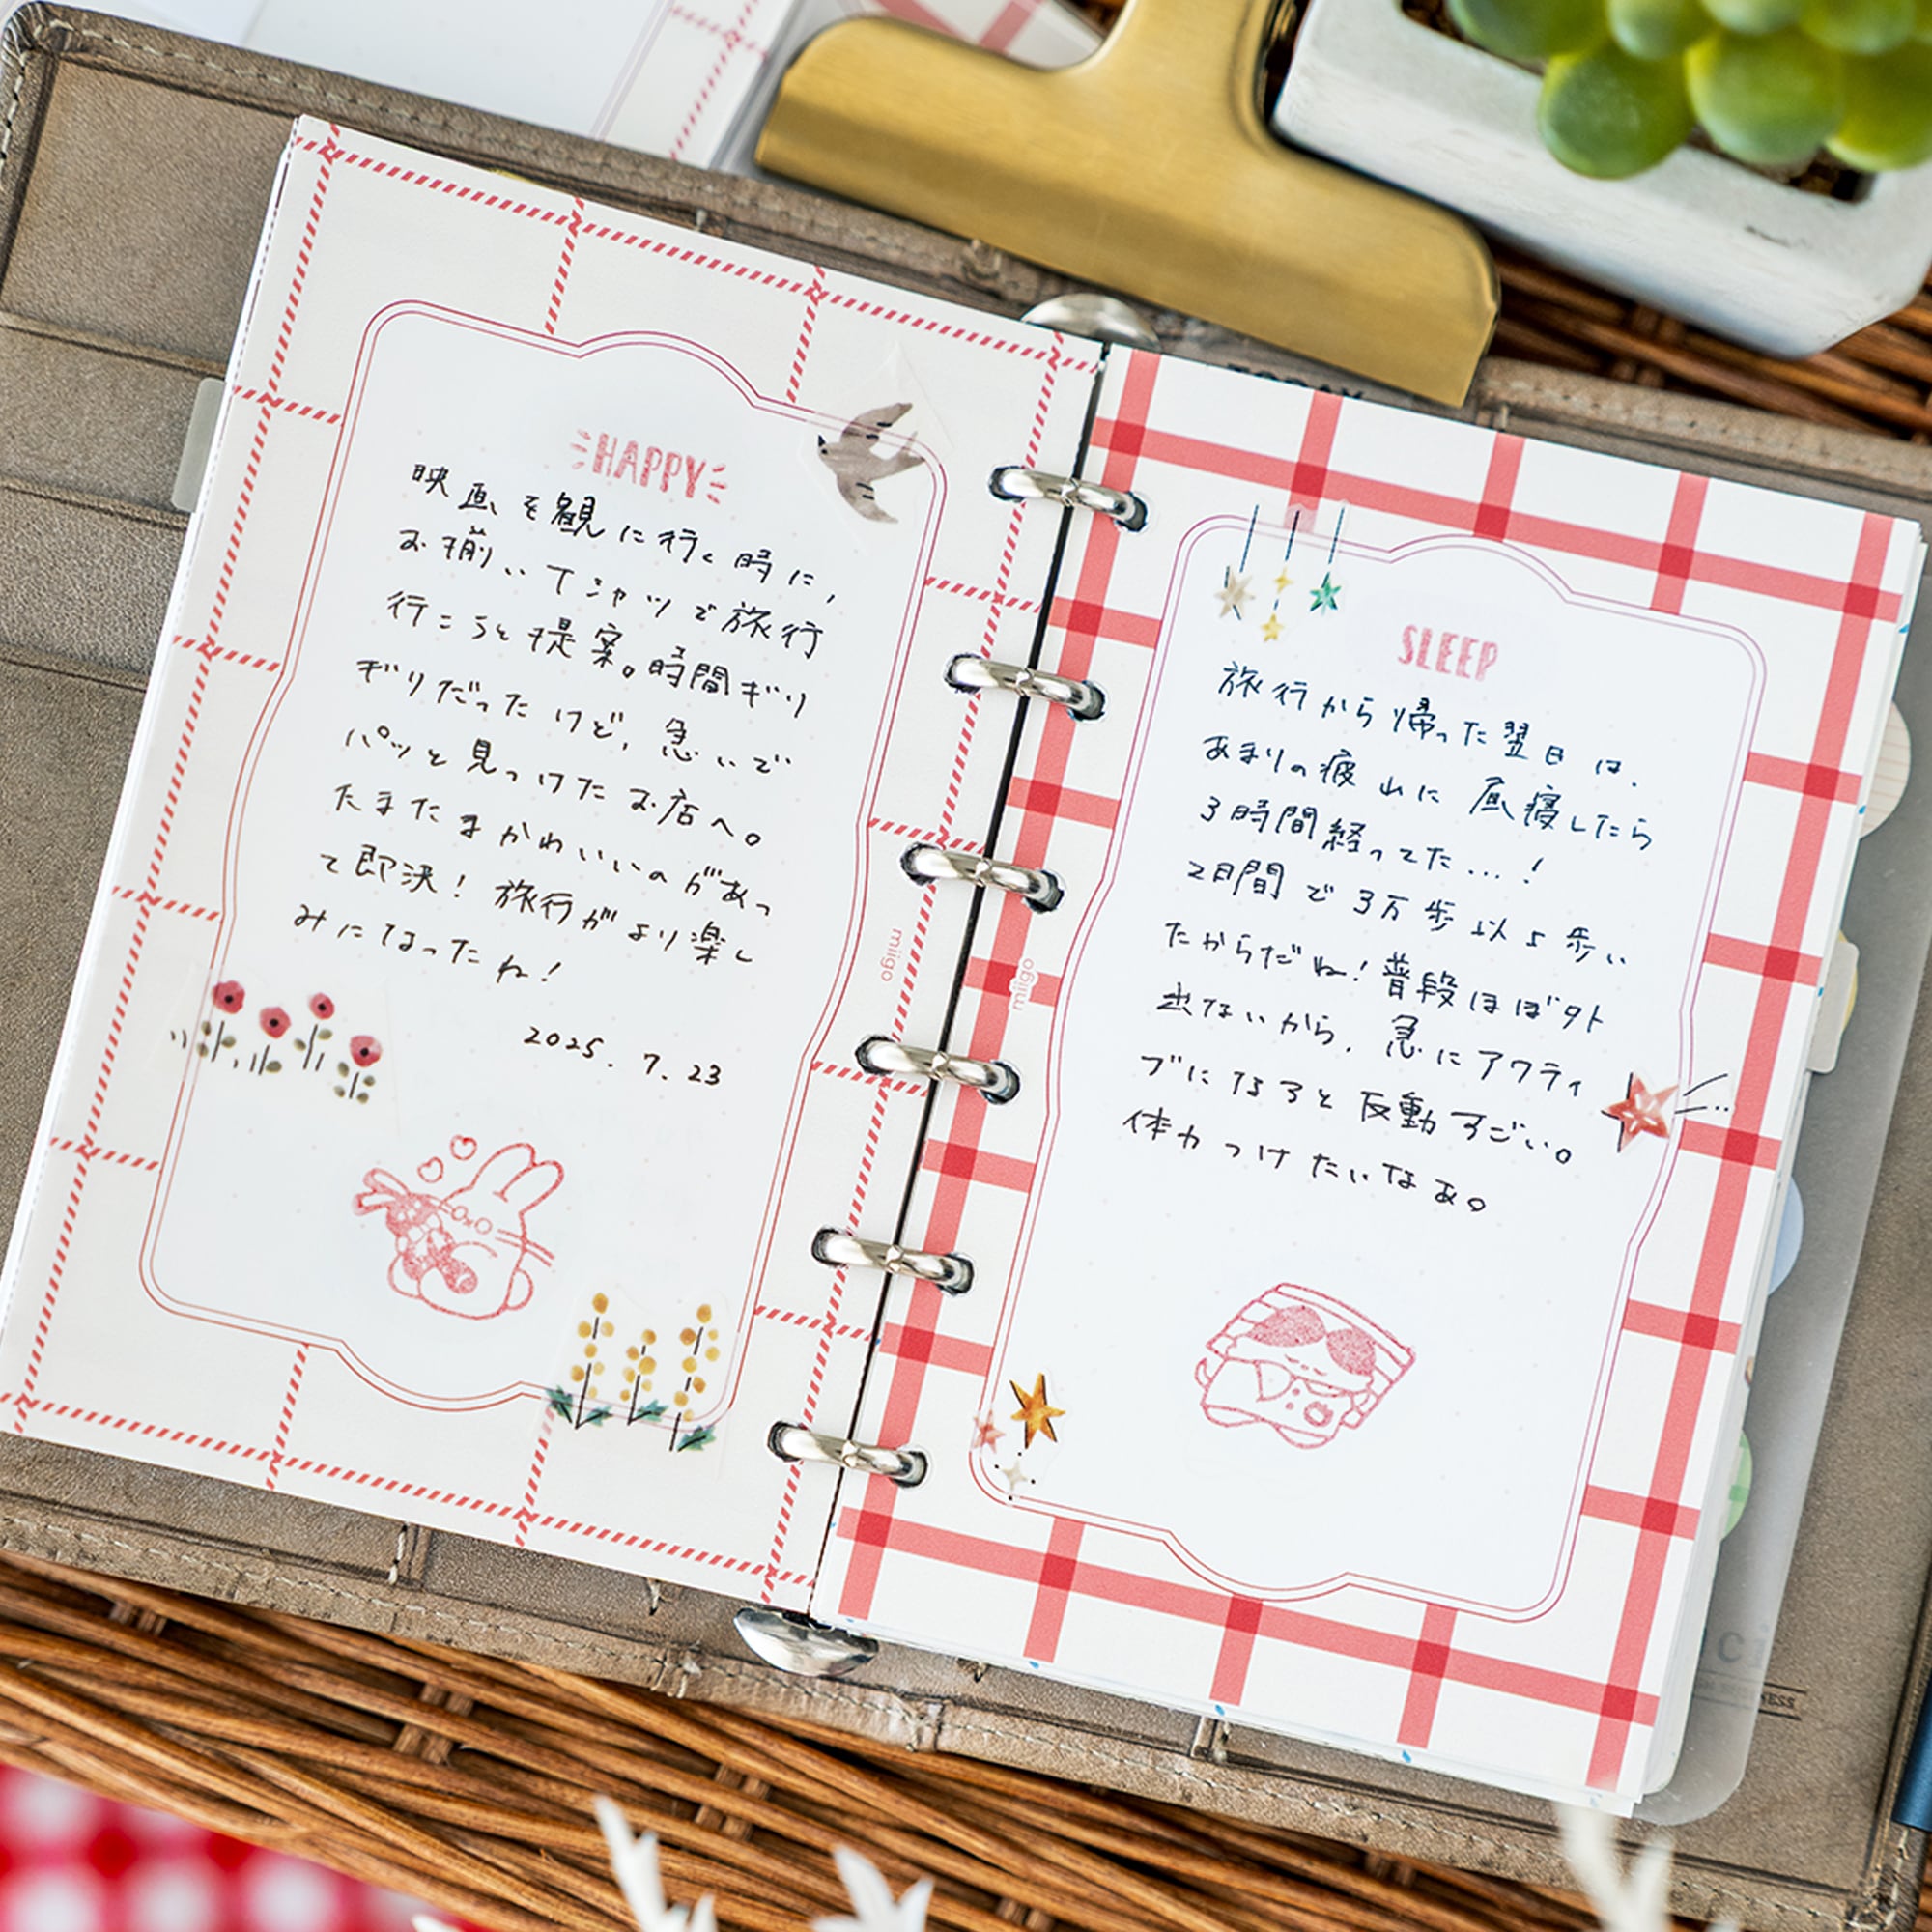 HAPPY
映画を観に行く時に、
お揃いTシャツで旅行
行こうと提案。時間ギリ
ギリだったけど、急いで
パッと見つけたお店へ。
たまたまかわいいのがあっ
て即決！旅行がより楽し
みになったね！
2025.7.23
miigo
TODAY
SLEEP
旅行から帰った翌日は、
あまりの疲れに昼寝したら
3時間経ってた…！
2日間で3万歩以上歩い
たからだね！普段ほぼ外
出ないから、急にアクティ
ブになると反動すごい。
体力つけたいなあ。
miigo